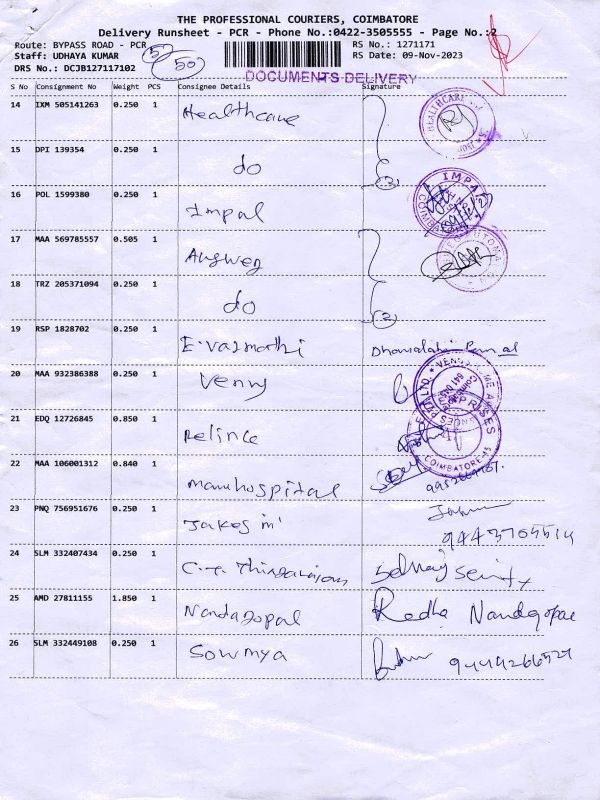 THE PROFESSIONAL COURIERS, COIMBATORE
Delivery Runsheet - PCR - Phone No.:0422-3505555 - Page No.:2
Route: BYPASS ROAD - PCR
RS No.: 1271171
Staff: UDHAYA KUMAR
RS Date: 09-Nov-2023
DRS No.: DCJB127117102
50
DOCUMENTS DELIVERY
S No Consignment No Weight PCS Consignee Details Signature
14 IXM 505141263 0.250 1 Healthcare
HEALTHCARE
15 DPI 139354 0.250 1 do
(2)
16 POL 1599380 0.250 1 Impal
IMPA
17 MAA 569785557 0.505 1
18 TRZ 205371094 0.250 1 do
(2)
19 RSP 1828702 0.250 1
20 MAA 932386388 0.250 1 Venny
21 EDQ 12726845 0.850 1 Relince
COIMBATORE-45
22 MAA 106001312 0.840 1 manuhospital
23 PNQ 756951676 0.250 1
24 SLM 332407434 0.250 1
25 AMD 27811155 1.850 1 Nandagopal Radha Nandgopal
26 SLM 332449108 0.250 1 Sowmya